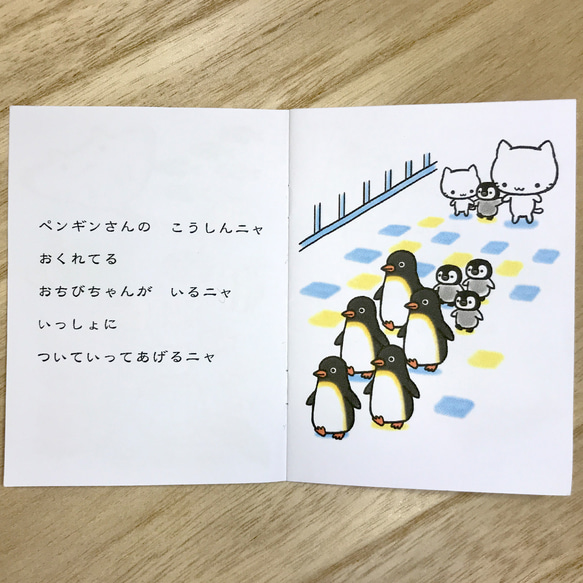 ペンギンさんの　こうしんニャ
おくれてる
おちびちゃんが　いるニャ
いっしょに
ついていってあげるニャ